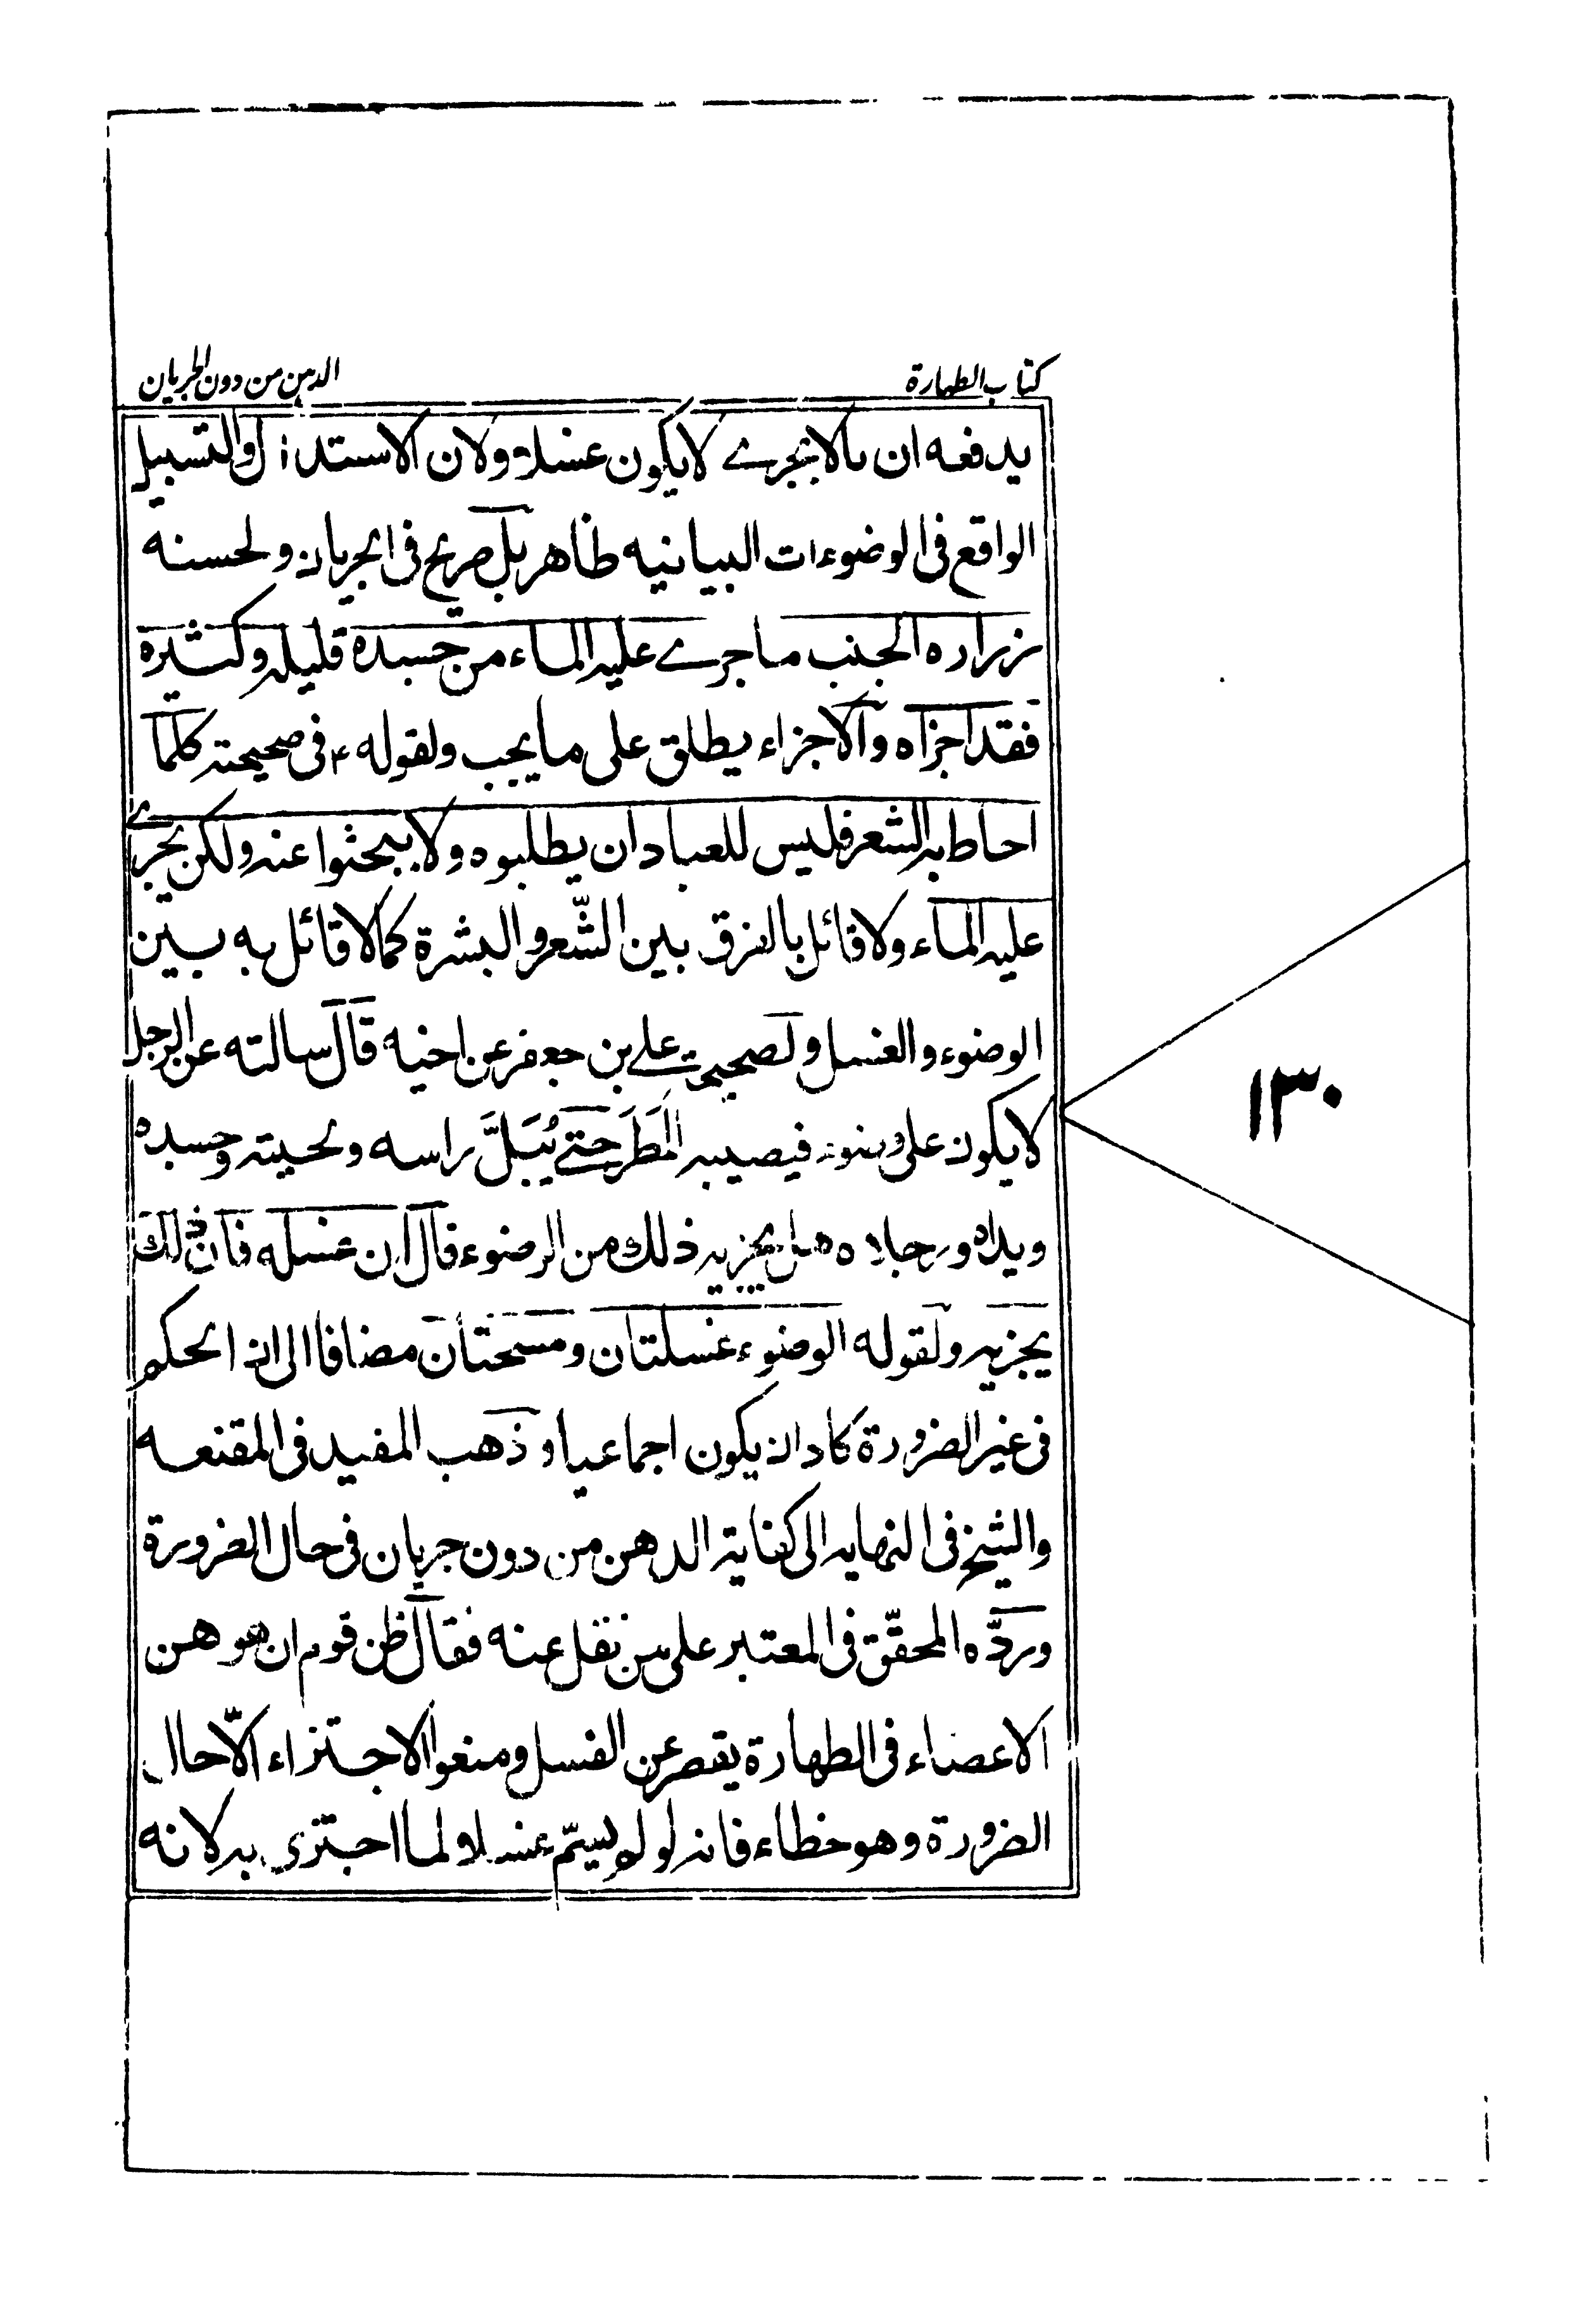 كتاب الطهارة
الدهن من دون الجريان
يدفعه ان مالايجرے لايكون غسلا ولان الاستدلال والتسبيل
الواقع فى الوضوءات البيانيه ظاهر بل صريح فى الجريان ولحسنه
زراره الجنب ماجرے عليه الماء من جسده قليله وكثيره
فقد اجزاه والاجزاء يطلق على مايجب ولقوله ع فى صحيحته كلما
احاط به الشعر فليس للعباد ان يطلبوه ولايبحثوا عنه ولكن يجرے
عليه الماء ولا قائل بالفرق بين الشّعر والبشرة كما لا قائل به بين
الوضوء والغسل ولصحيحة علے بن جعفر عن اخيه قال سالته عن الرجل
لايكون على وضوء فيصيبه المَطَر حتے يُبَلَّ راسه ولحيته وجسده
ويداه ورجلاه هل يجزيه ذلك من الوضوء قال ان غسله فان ذلك
يجزيه ولقوله الوضوء غسلتان ومسحتان مضافا الى ان الحكم
فى غير الضرورة كاد ان يكون اجماعيا وذهب المفيد فى المقنعه
والشيخ فى النهايه الى كفاية الدهن من دون جريان فى حال الضرورة
وردّه المحقّق فى المعتبر على من نقل عنه فقال ظن قوم ان هو هن
الاعضاء فى الطهارة يقصر عن الغسل ومنعوا الاجتزاء الّا حال
الضرورة وهو خطاء فانه لو لم يسمّ غسلا ولما اجتزى به لانه
١٣٠